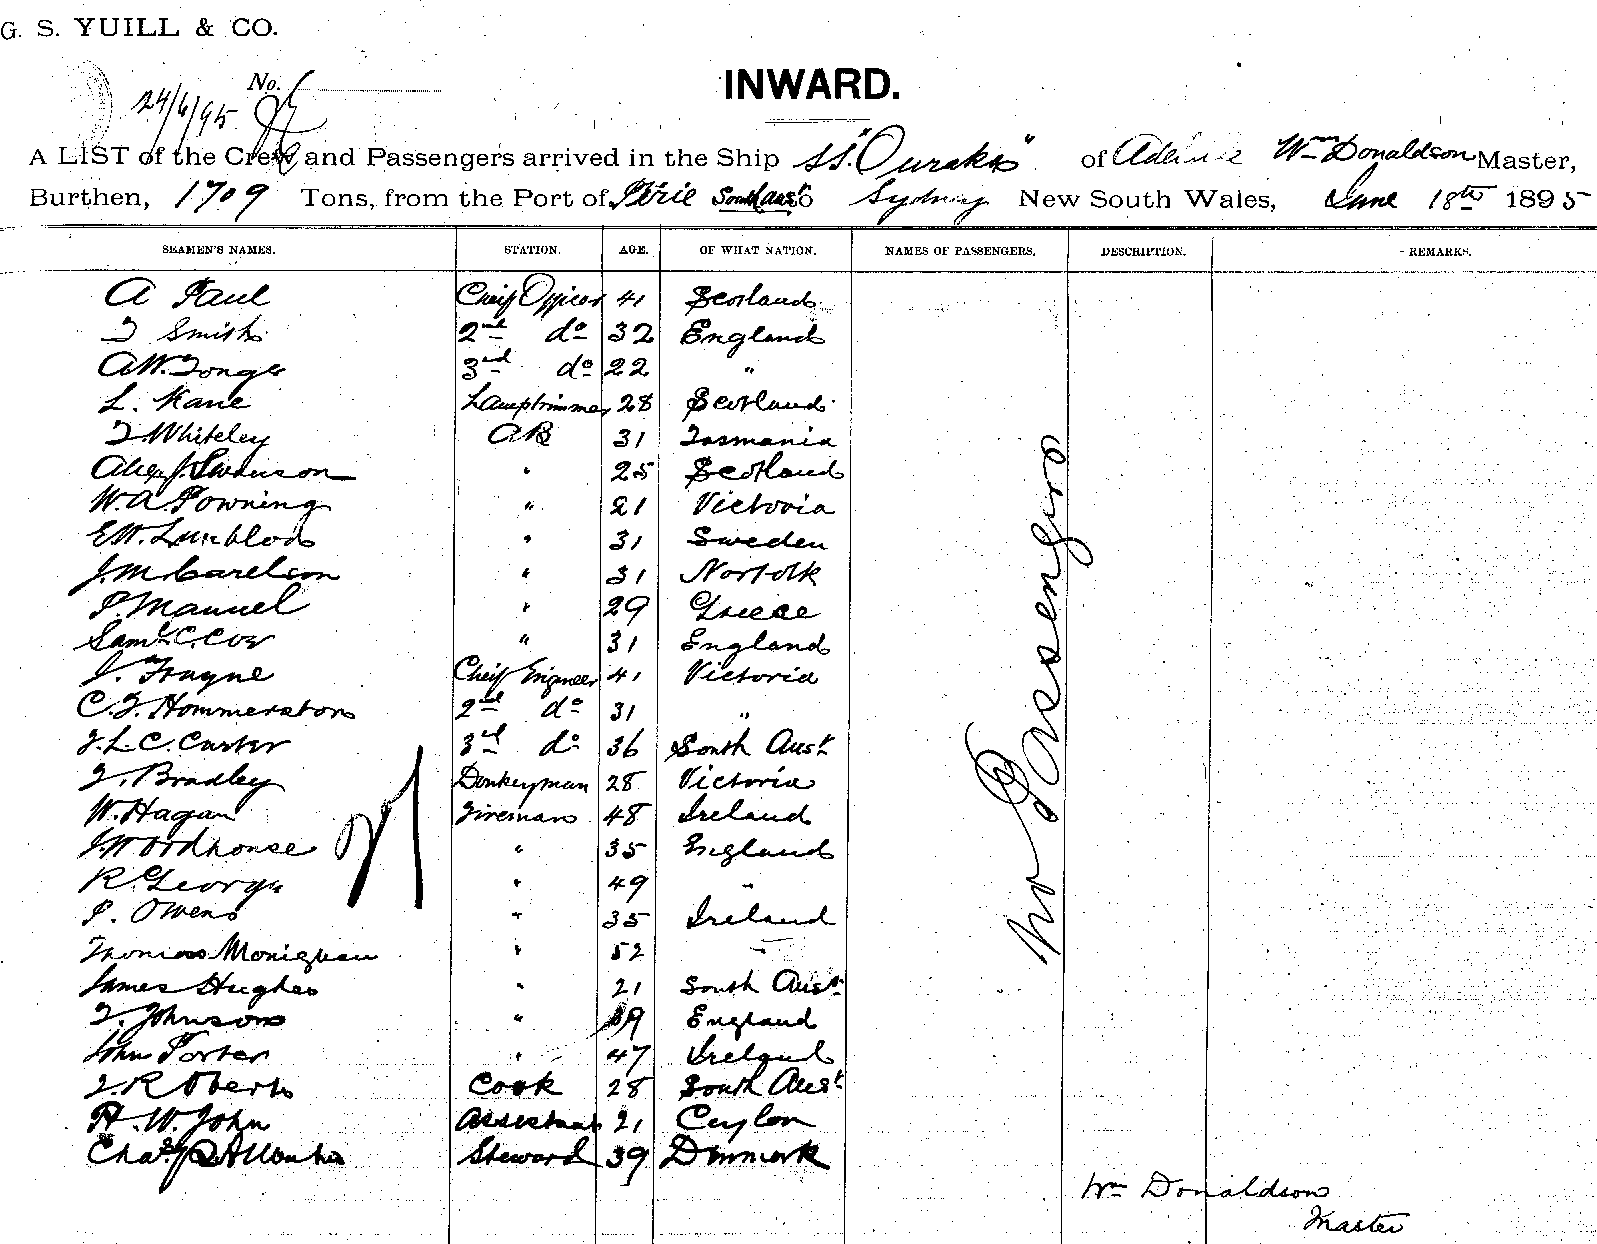 G. S. YUILL & CO.
No.
24/6/95
INWARD.
A LIST of the Crew and Passengers arrived in the Ship SS. "Ouraka" of Wm Donaldson Master,
Burthen, 1709 Tons, from the Port of Pirie South Aus to Sydney New South Wales, June 18th 1895
SEAMEN'S NAMES. STATION. AGE. OF WHAT NATION. NAMES OF PASSENGERS. DESCRIPTION. REMARKS.
A Paul Cheif Officer 41 Scotland
T Smith 2nd do 32 England
A.W. Tonge 3rd do 22 "
L. Kane Lamptrimmer 28 Scotland
T Whiteley AB 31 Tasmania
Alex J. Swanson " 25 Scotland
W. A. Powning " 21 Victoria
E.W. " 31 Sweden
J. M. Carelson " 31 Norfolk
P. Manuel " 29 Greece
Saml C. Cox " 31 England
J. Trayne Cheif Engineer 41 Victoria
C. T. Hommerston 2nd do 31 "
J. L. C. Carter 3rd do 36 South Aust
T. Bradley Donkeyman 28 Victoria
W. Hagan Fireman 48 Ireland
J. Woodhouse " 35 England
R. George " 49 "
P. Owens " 35 Ireland
Thomas " 52 "
James Hughes " 21 South Aust
T. Johnson " 39 England
John Porter " 47 Ireland
T. Roberts Cook 28 South Aust
H. W. John Assistant 21 Ceylon
Chas Steward 39 Denmark
No Passengers
Wm Donaldson
Master